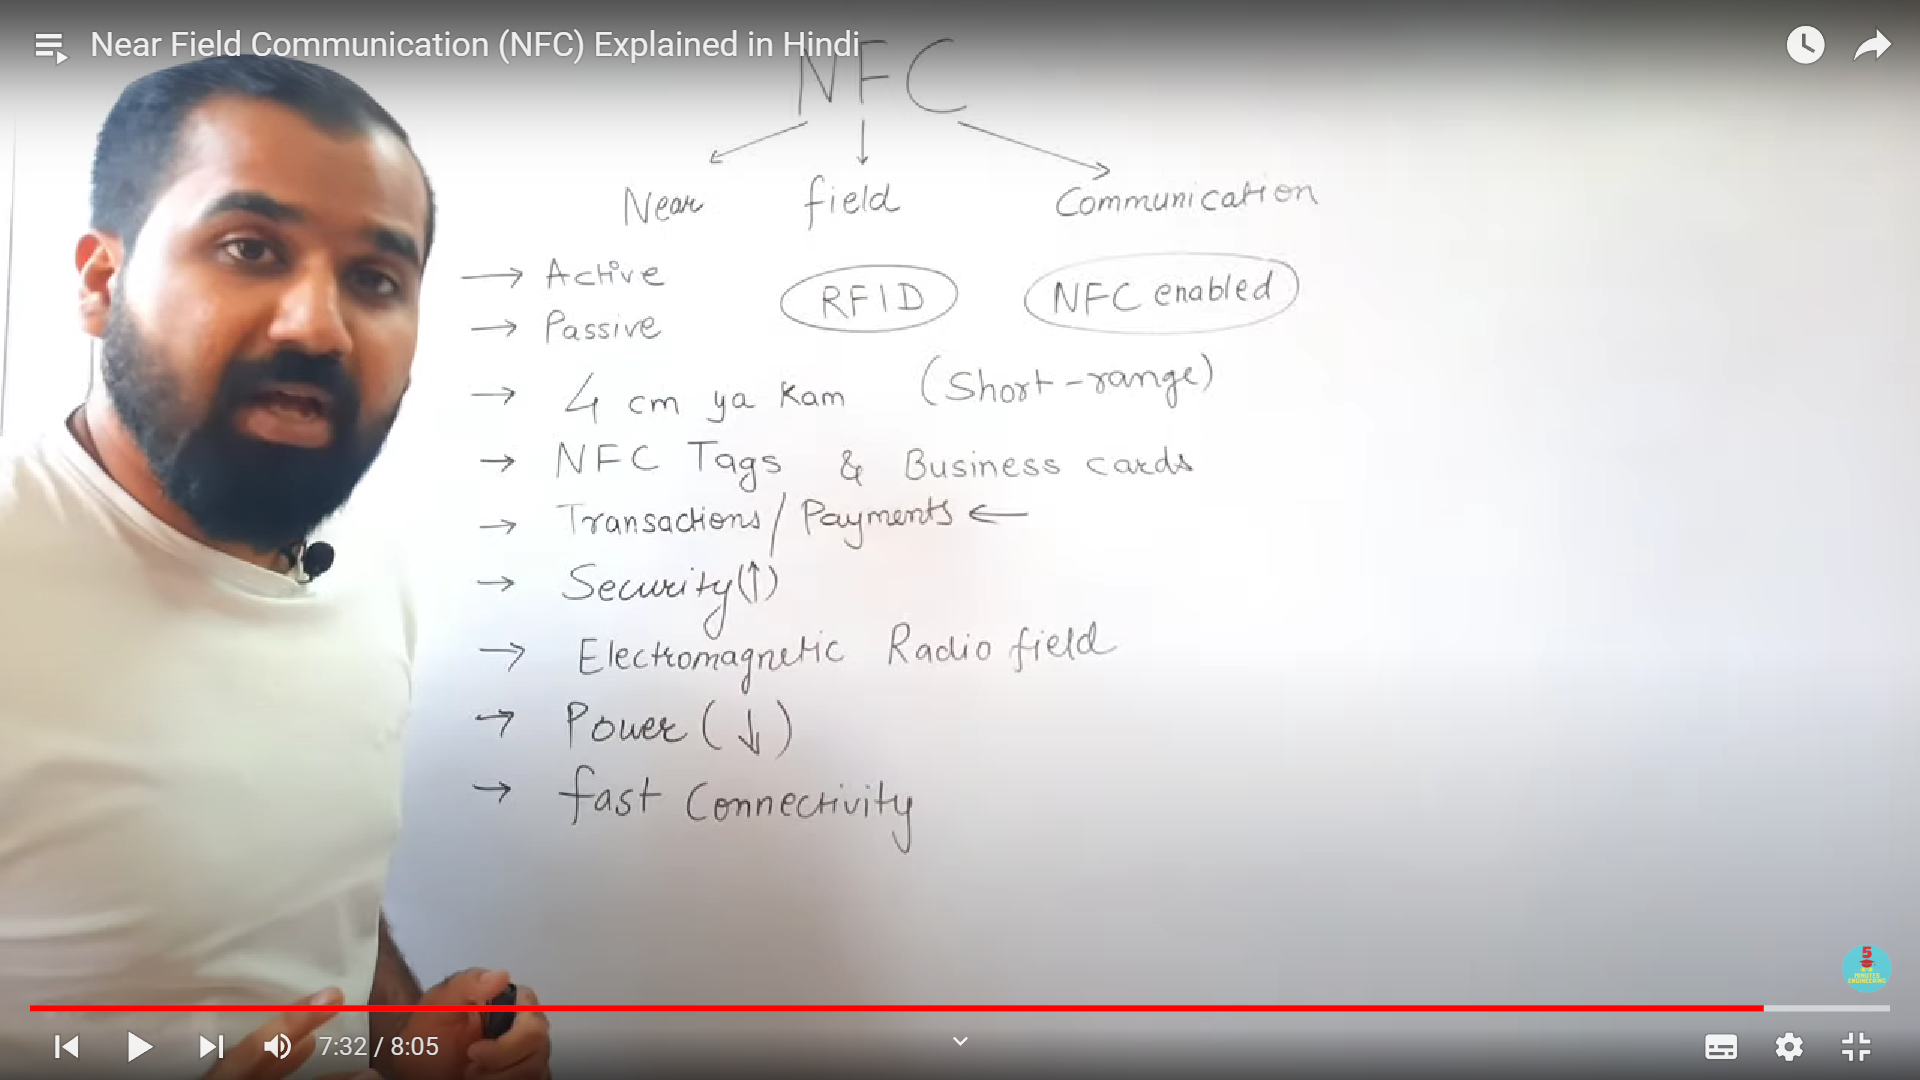 Near Field Communication (NFC) Explained in Hindi
NFC
Near field Communication
→ Active
→ Passive
RFID
NFC enabled
→ 4 cm ya Kam (Short-range)
→ NFC Tags & Business cards
→ Transactions/Payments ←
→ Security(↑)
→ Electromagnetic Radio field
→ Power (↓)
→ fast Connectivity
5
MINUTES
ENGINEERING
7:32 / 8:05